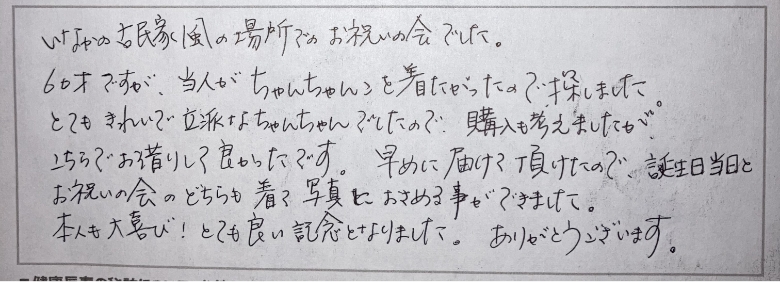 いなかの古民家風の場所でのお祝いの会でした。
60才ですが、当人がちゃんちゃんこを着たがったので探しました。
とてもきれいで立派なちゃんちゃんでしたので、購入も考えましたが、
こちらでお借りして良かったです。早めに届けて頂けたので、誕生日当日と
お祝いの会のどちらも着て写真におさめる事ができました。
本人も大喜び！とても良い記念となりました。ありがとうございます。